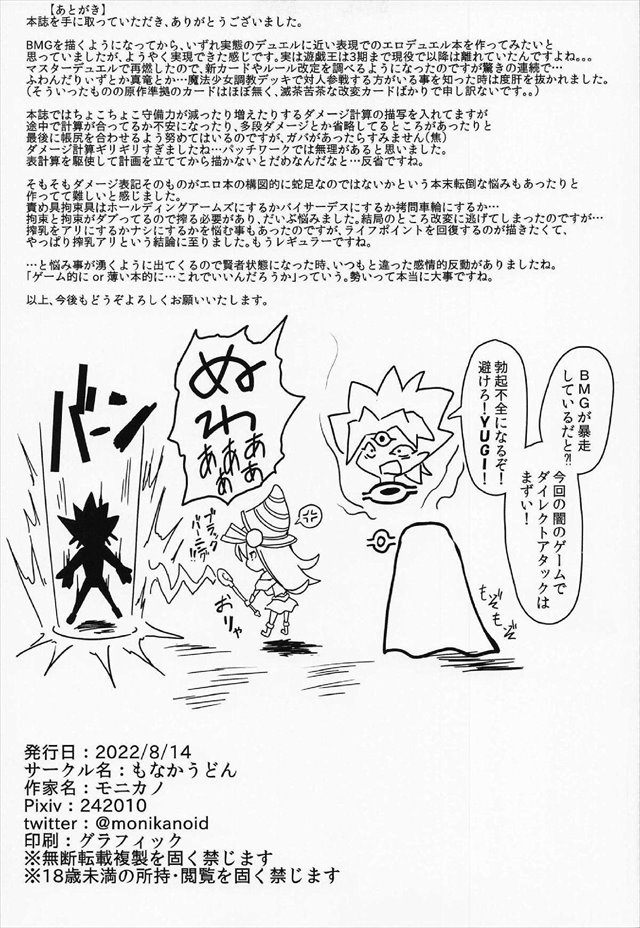 【あとがき】
本誌を手に取っていただき、ありがとうございました。
BMGを描くようになってから、いずれ実態のデュエルに近い表現でのエロデュエル本を作ってみたいと
思っていましたが、ようやく実現できた感じです。実は遊戯王は3期まで現役で以降は離れていたんですよね。。。
マスターデュエルで再燃したので、新カードやルール改定を調べるようになったのですが驚きの連続で…
ふわんだりぃずとか真竜とか…魔法少女調教デッキで対人参戦する方がいる事を知った時は度肝を抜かれました。
（そういったものの原作準拠のカードはほぼ無く、滅茶苦茶な改変カードばかりで申し訳ないです。。）
本誌ではちょこちょこ守備力が減ったり増えたりするダメージ計算の描写を入れてますが
途中で計算が合ってるか不安になったり、多段ダメージとか省略してるところがあったりと
最後に帳尻を合わせるよう努めてはいるのですが、ガバがあったらすみません（焦）
ダメージ計算ギリギリすぎましたね…パッチワークでは無理があると思いました。
表計算を駆使して計画を立ててから描かないとだめなんだなと…反省ですね。
そもそもダメージ表記そのものがエロ本の構図的に蛇足なのではないかという本末転倒な悩みもあったりと
作ってて難しいと感じました。
責め具拘束具はホールディングアームズにするかバイサーデスにするか拷問車輪にするか…
拘束と拘束がダブってるので搾る必要があり、だいぶ悩みました。結局のところ改変に逃げてしまったのですが…
搾乳をアリにするかナシにするかを悩む事もあったのですが、ライフポイントを回復するのが描きたくて、
やっぱり搾乳アリという結論に至りました。もうレギュラーですね。
…と悩み事が湧くように出てくるので賢者状態になった時、いつもと違った感情的反動がありましたね。
「ゲーム的に or 薄い本的に…これでいいんだろうか」っていう。勢いって本当に大事ですね。
以上、今後もどうぞよろしくお願いいたします。
BMGが暴走
しているだと?!
今回の闇のゲームで
ダイレクトアタックは
まずい！
勃起不全になるぞ！
避けろ！YUGI！
ぬ
わ
ああ
ああ
ああ
バーン
ブラック
バーニング
おりゃ
もぞ
もぞ
発行日：2022/8/14
サークル名：もなかうどん
作家名：モニカノ
Pixiv：242010
twitter：@monikanoid
印刷：グラフィック
※無断転載複製を固く禁じます
※18歳未満の所持・閲覧を固く禁じます